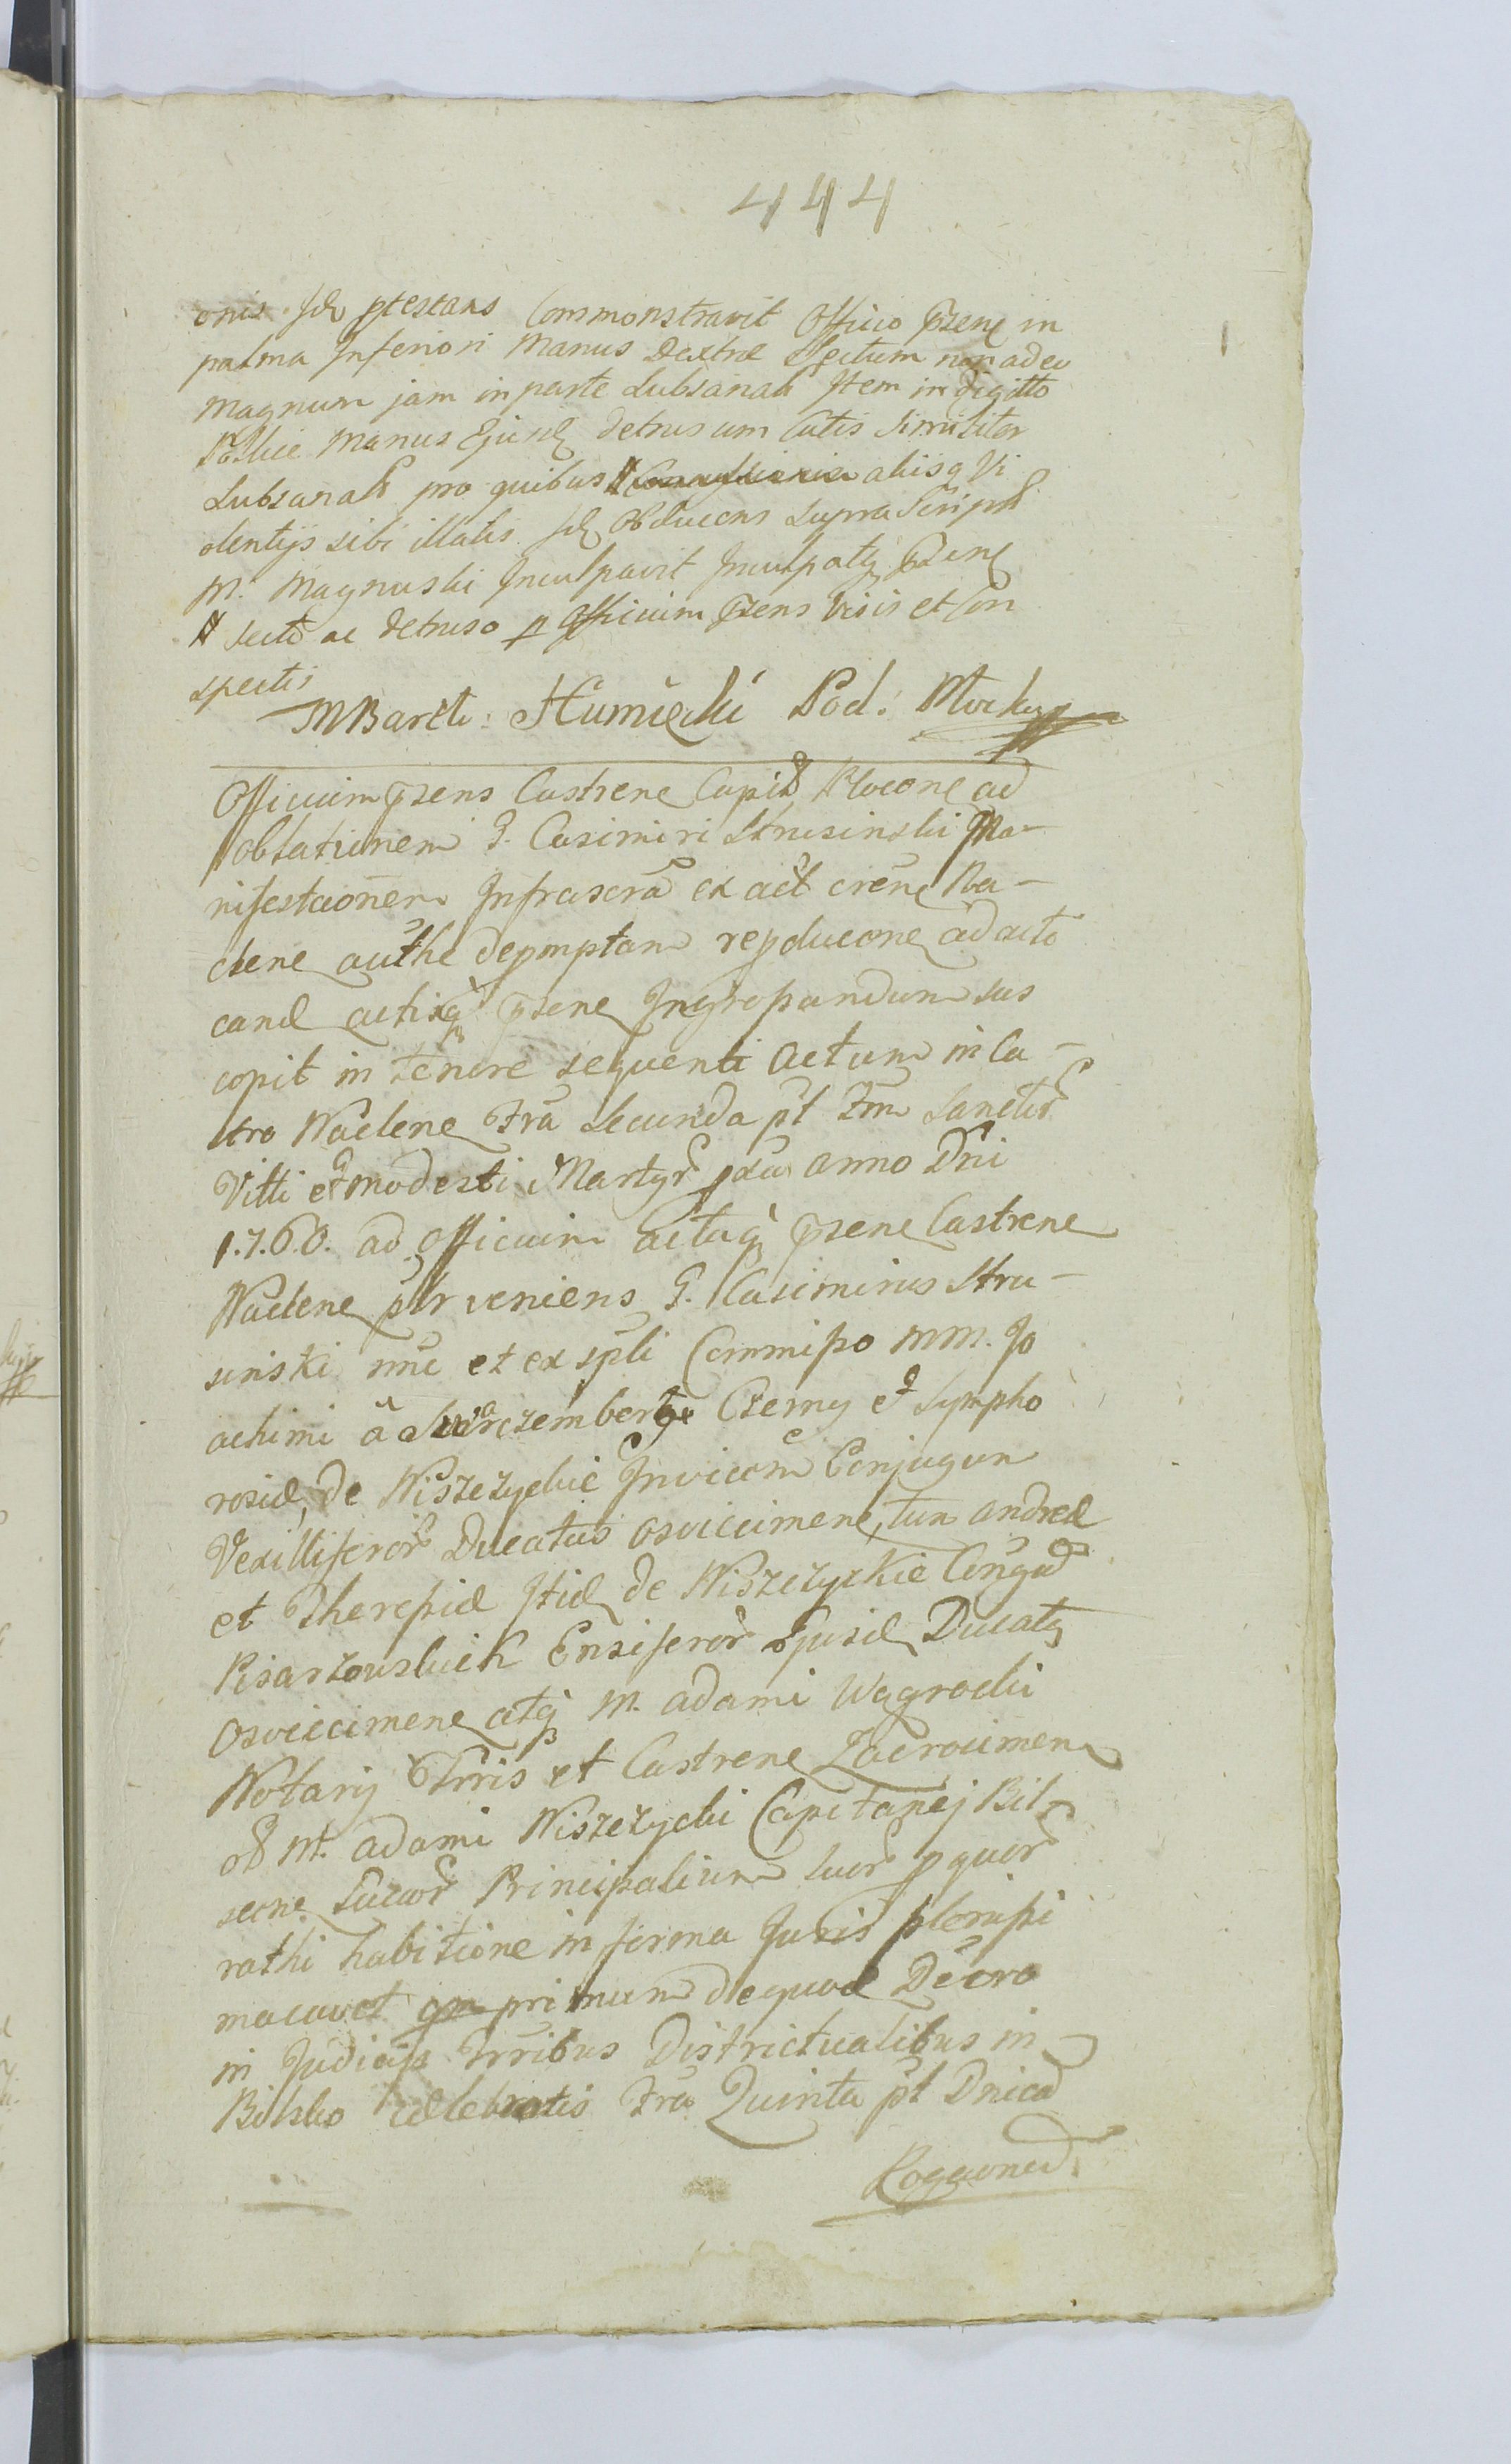 444
onis. Idq ptestans Commonstravit Officio przene in
palma Inferiori Manus Dextræ Sectum non adeo
magnum jam in parte Lubsanatt Item in digitto
Pollice Manus Ejusd detrusum Cutis Similiter
Lubsanatt pro quibus # aliisq Vi
olentijs sibi illatis. Idq Obducens Supra Script
M. Magnuski Inculpavit Inculpatq przene
# secto ac detruso p Officium przens visis et Con
spectis
MBarcti: Humięcki Pod: Płocki
Officium przens Castrene Capit Plocene ad
oblationem G. Casimiri Strusinski Ma-
nifestaonem Infrascra ex act crene Ra-
ciene authe depmptam repducone ad acto
cand actisq przene Ingrossandum sus
cepit in tenore sequenti Actum in Ca-
stro Raciene Fra Secunda pt Fm Sanctor
Vitti et Modesti Martyr pxa anno Dni
1.7.6.0. ad Officium actaq przene Castrene
Raciene pltr veniens G. Casimirus Stru-
sinski nne et ex spli Commisso MM. Jo
achimi a Szwarczemberg Czerny et Sympho
rosiæ de Niszczyckie Invicem Conjugum
Vexilliferor Ducatus Osviecimene, tum Andreæ
et Theressiæ Itid de Niszczyckie Congu
Pisarzowskich Ensiferor Ejusd Ducatq
Osviecimene atq M. Adami Wągrodki
Notarij Trris et Castrene Zacrocimen
et M. Adami Niszczycki Capitanej Bil-
scene Sucor Principalium suor p quor
rathi habitione in forma Juris plenissi
ma cavet primum de quod Decro
in Judicijs Trribus Districtualibus in
Bilsko celebratis Fra Quinta pt Dnicā
Rogaoned